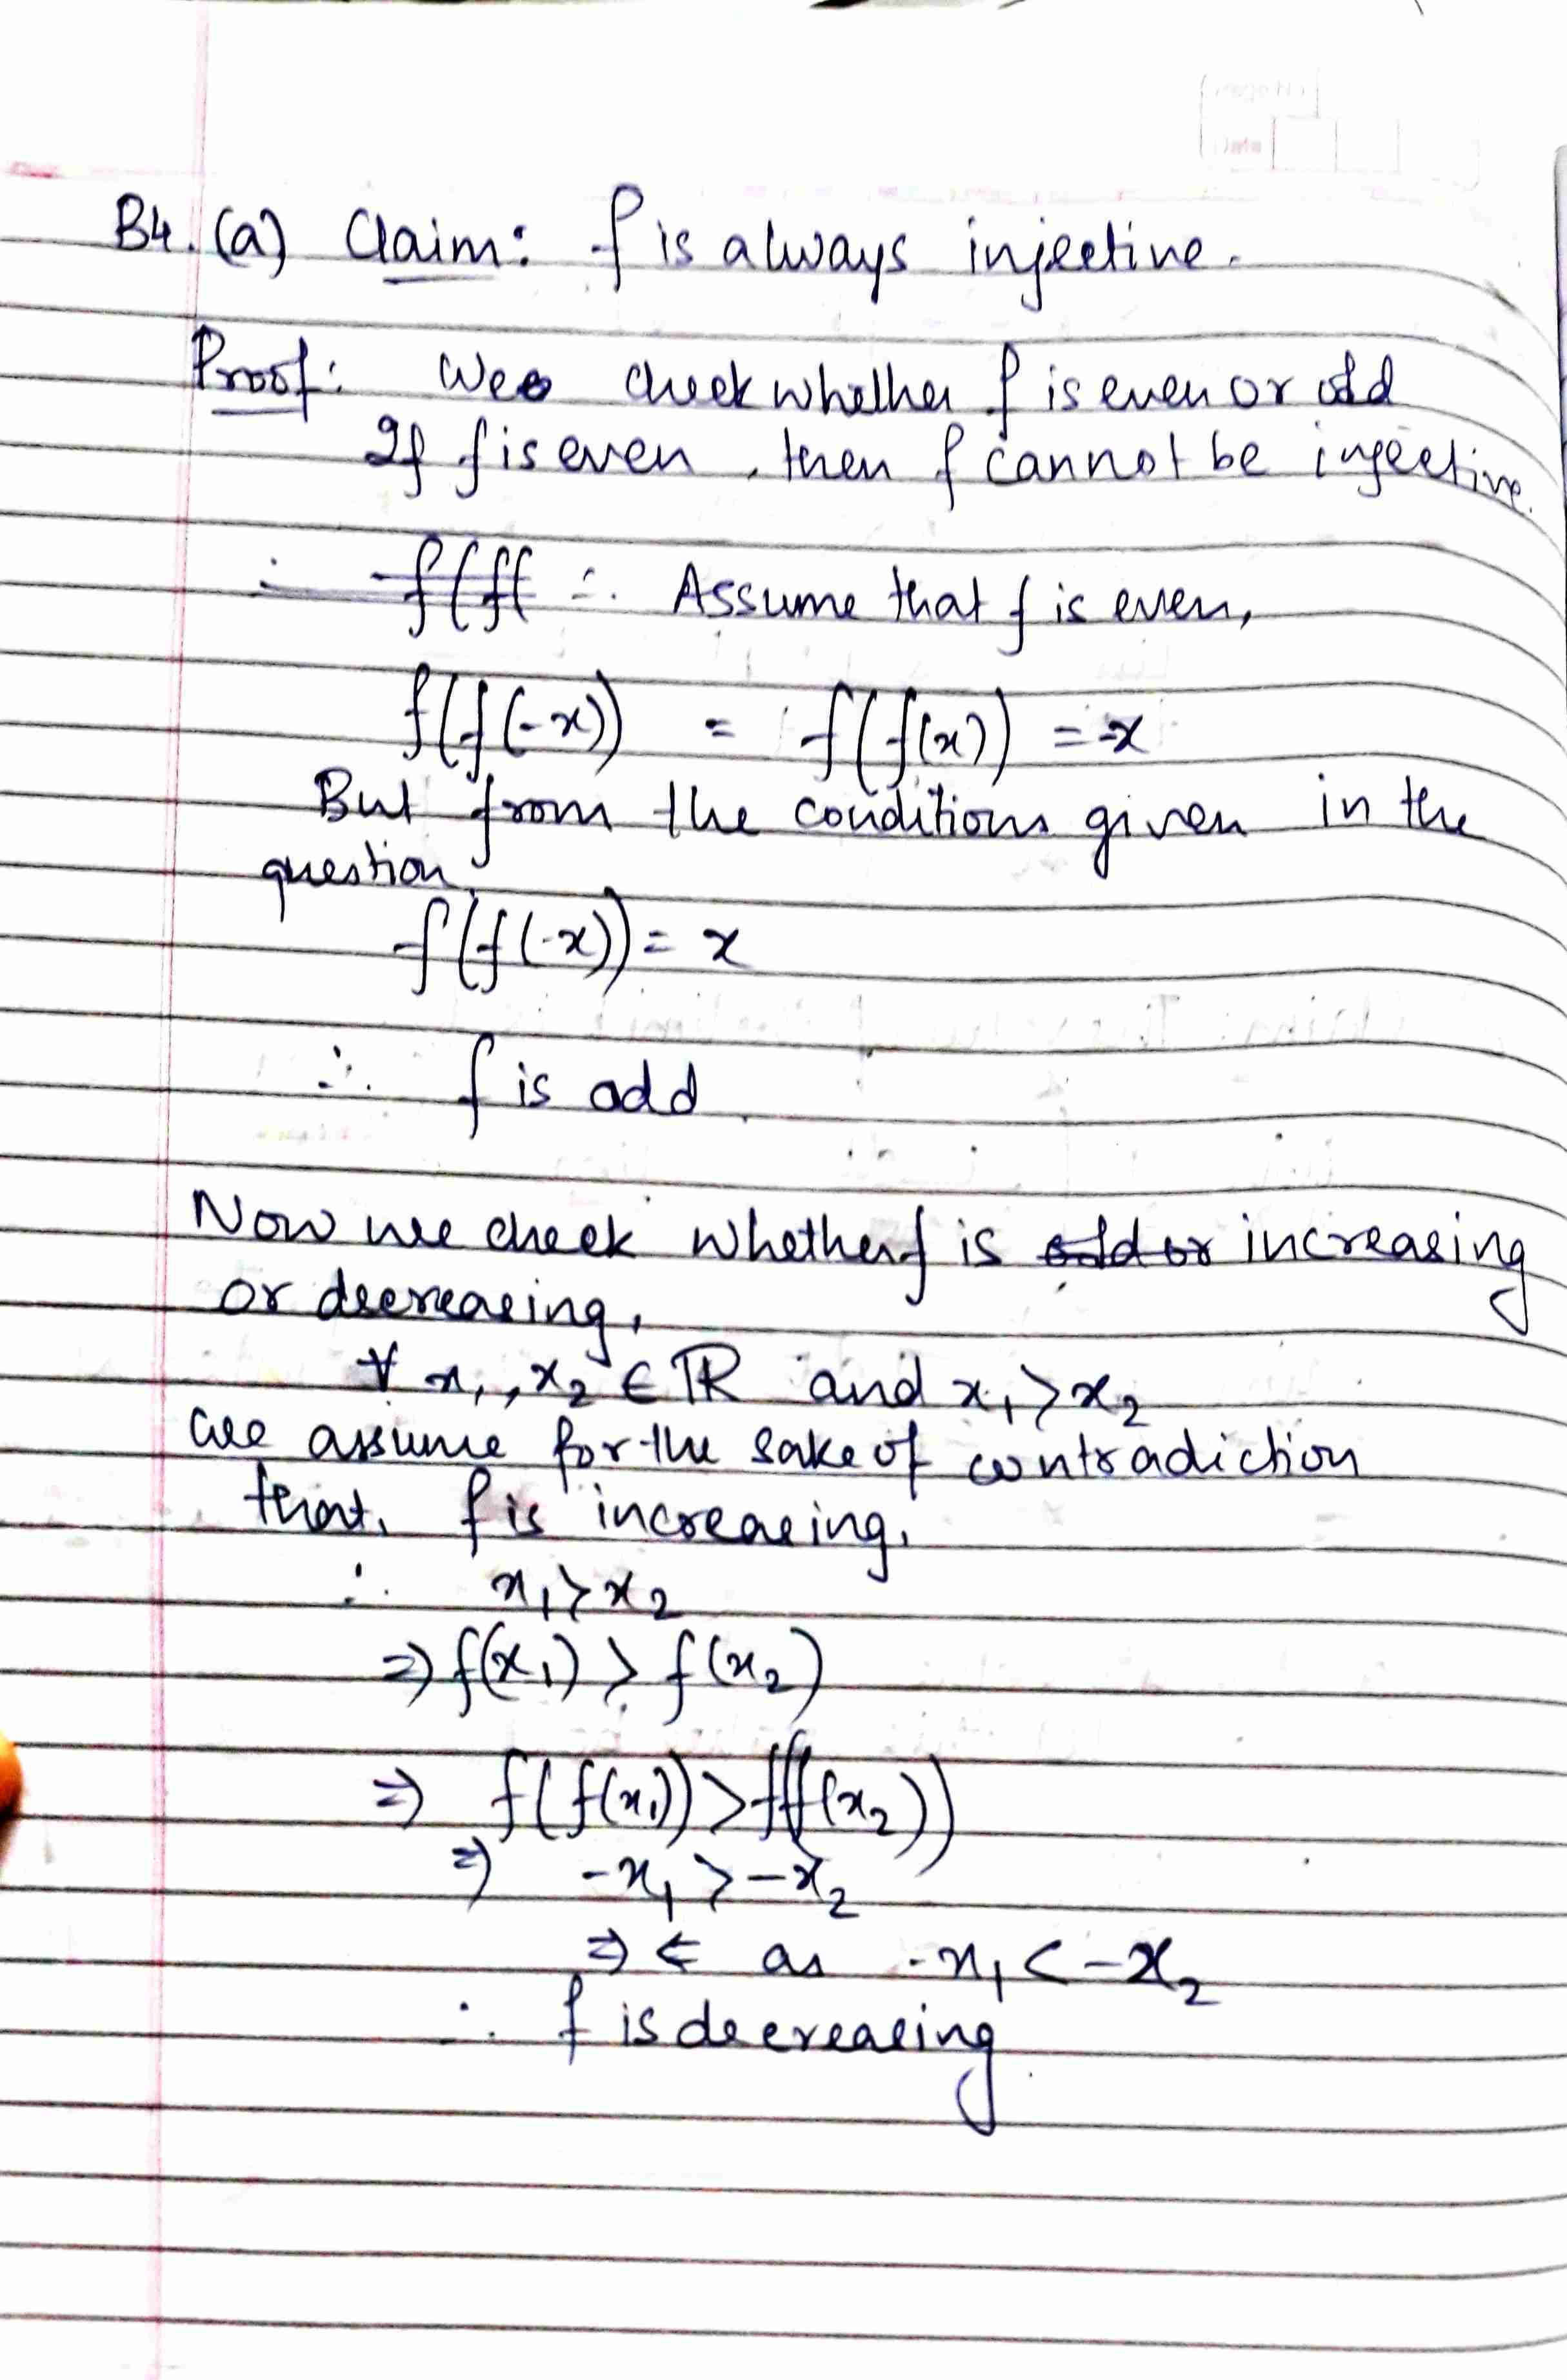 B4. (a) Claim: f is always injective.
Proof: We check whether f is even or odd
If f is even, then f cannot be injective.
∴ f(f( ∴ Assume that f is even,
f(f(-x)) = f(f(x)) = -x
But from the conditions given in the
question,
f(f(-x)) = x
∴ f is odd.
Now we check whether f is odd or increasing
or decreasing,
∀ x₁, x₂ ∈ ℝ and x₁ > x₂
We assume for the sake of contradiction
that, f is increasing.
∴ x₁ > x₂
⇒ f(x₁) > f(x₂)
⇒ f(f(x₁)) > f(f(x₂))
⇒ -x₁ > -x₂
⇒⇐ as -x₁ < -x₂
∴ f is decreasing